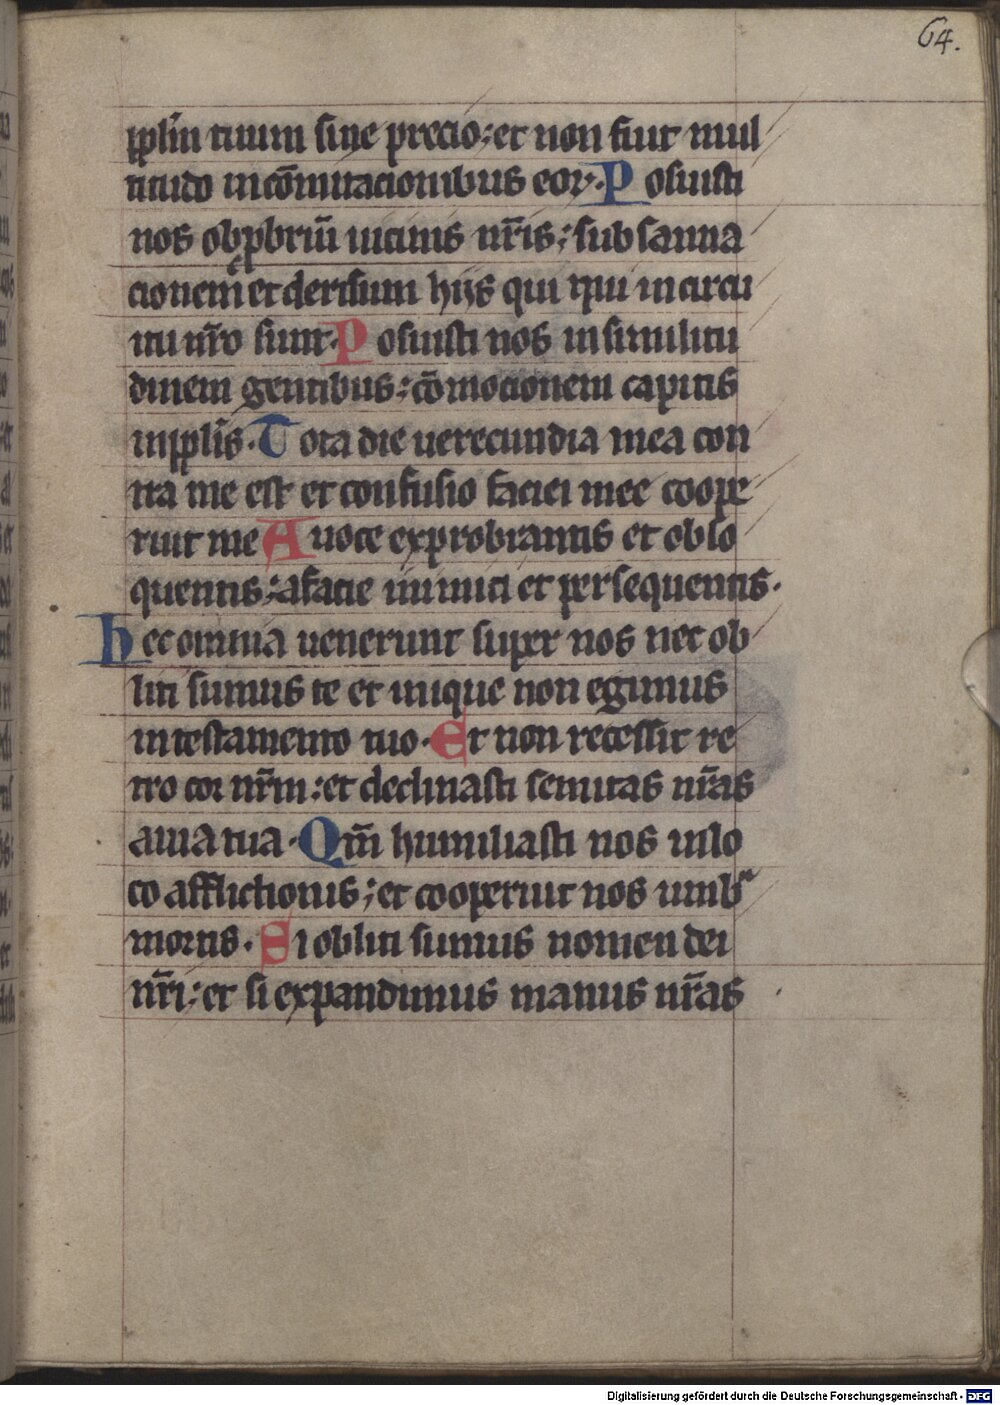 64.
pplm̄ tuum sine precio: et non fuit mul
titudo in cōmutacionibus eoꝝ. Posuisti
nos obpbriū uicinis nr̄is: subsanna
cionem et derisum hijs qui qui in circu
itu nr̄o sunt. Posuisti nos in similitu
dinem gentibus: cōmocionem capitis
in pplis̄. Tota die uerecundia mea con
tra me est et confusio faciei mee coope
ruit me A uoce exprobrantis et oblo
quentis: a facie inimici et persequentis.
Hec omnia uenerunt super nos nec ob
liti sumus te et inique non egimus
in testamento tuo. Et non recessit re
tro cor nr̄m: et declinasti semitas nr̄as
a uia tua. Qm̄ humiliasti nos in lo
co afflictionis: et cooperuit nos umbᵃ
mortis. Si obliti sumus nomen dei
nr̄i: et si expandimus manus nr̄as
Digitalisierung gefördert durch die Deutsche Forschungsgemeinschaft - DFG